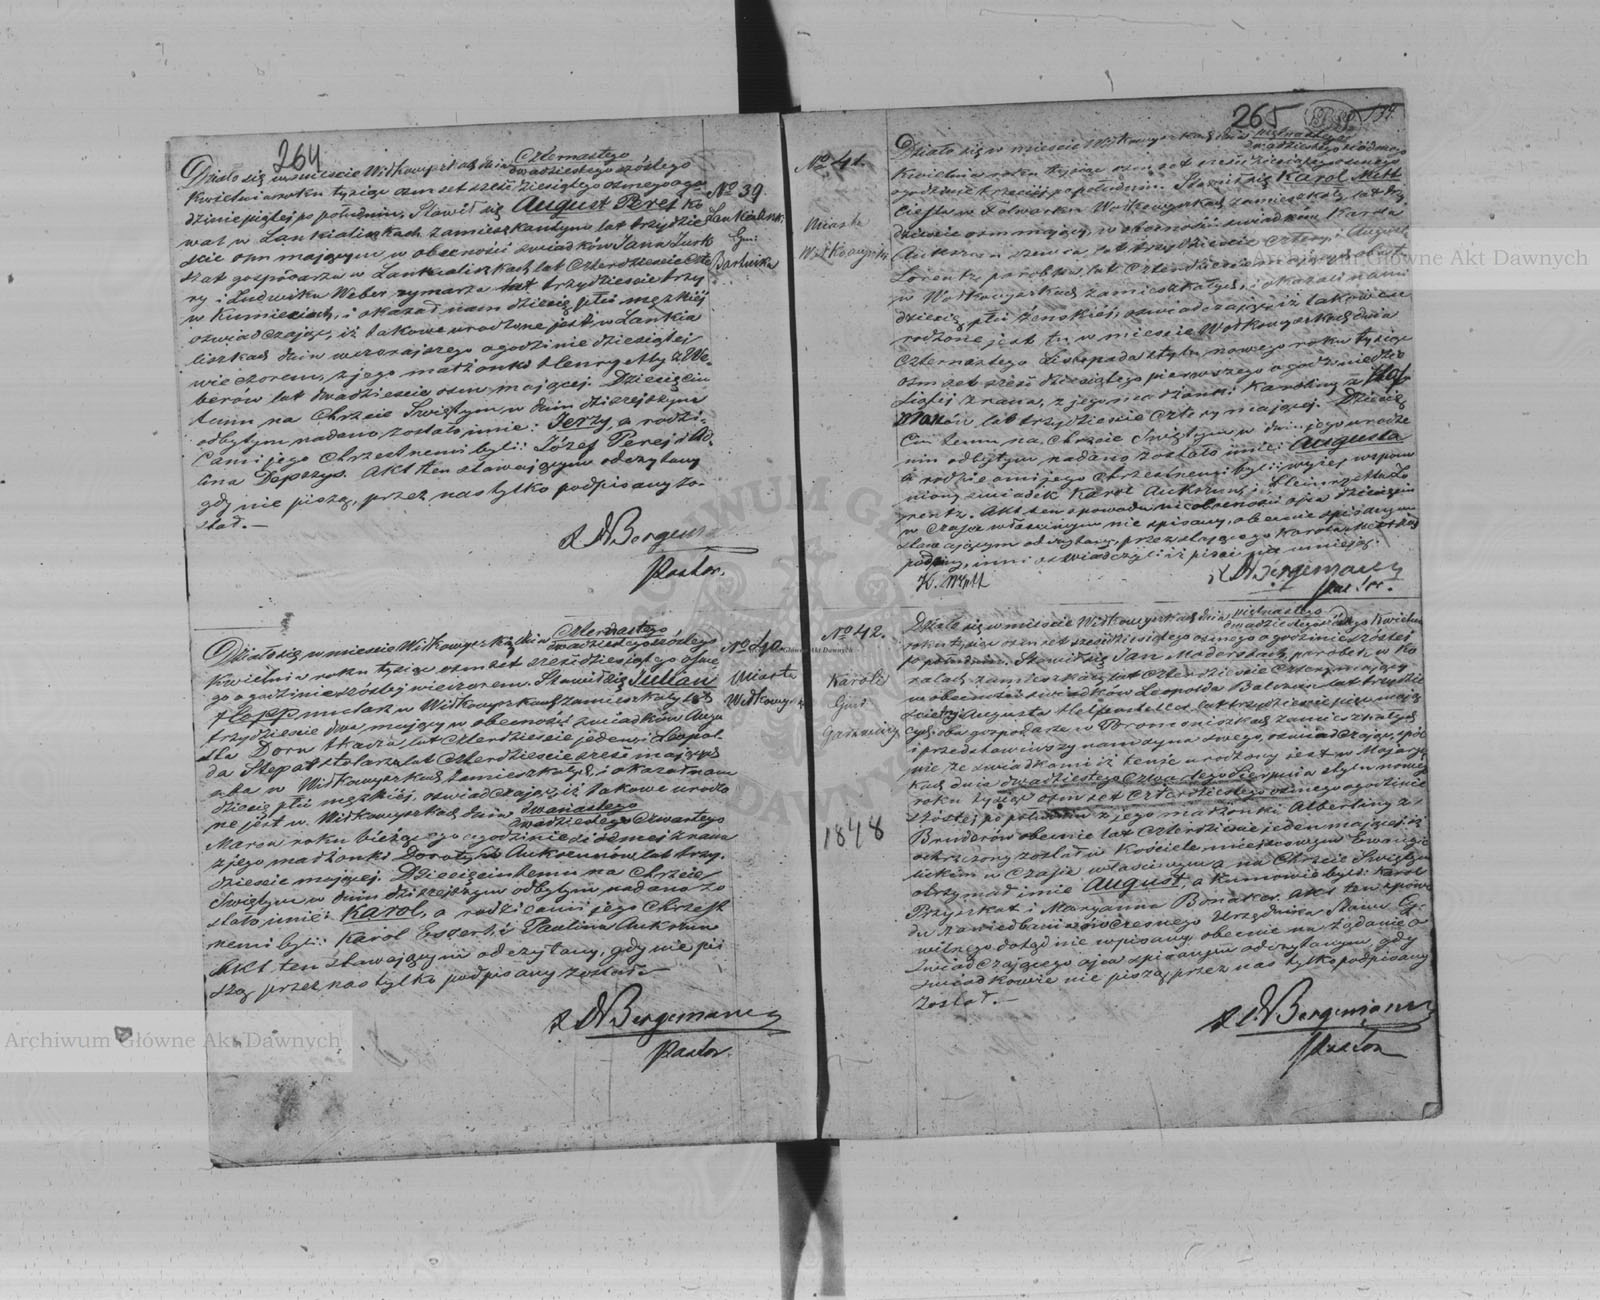 264
Działo się w mieście Wiłkowyszkach dnia Czternastego
dwudziestego szóstego
Kwietnia roku tysiąc ośmset sześćdziesiątego ósmego o go-
dzinie piątej po południu. Stawił się August Prejko
wat w Lankieliszkach zamieszkały lat trzydzie
ście ośm mającym w obecności świadków Jana
gospodarza w Lankieliszkach lat Czterdzieście czte
ry i Ludwika Weber rymarza lat trzydzieście trzy
w i okazał nam dziecię płci męzkiéj
oświadczając, iż takowe urodzone jest w Lankie
liszkach dnia wczorajszego o godzinie dziesiątéj
wieczorem, z jego małżonki Henryetty z We-
berów lat dwadzieście ośm mającej. Dziecięciu
temu na Chrzcie Świętym w dniu dzisiejszym
odbytym nadano zostało imie: Jerzy, a rodzi-
cami jego Chrzestnemi byli: Józef Perej i
lina Depszys. Akt ten stawającym odczytany
gdy nie piszą, przez nas tylko podpisany zo-
stał. —
Bergemann
Pastor.
No 39
Lankieliszki
Gmi
Bartniki
Działo się w mieście Wiłkowyszkach dnia Czternastego
dwudziestego szóstego
Kwietnia roku tysiąc ośmset sześćdziesiątego ósme
go o godzinie szóstej wieczorem. Stawił się Julian
Hepp mularz w Wiłkowyszkach zamieszkały lat
trzydzieście dwa mający w obecności świadków Augu
sta Dorn tkacza, lat czterdzieście jeden i Leopol
da Stepat stolarza lat czterdzieście sześć mających
oba w Wiłkowyszkach zamieszkałych, i okazał nam
dziecię płci męzkiéj, oświadczając, iż takowe urodzo
ne jest w Wiłkowyszkach dnia dwunastego
dwudziestego czwartego
Marca roku bieżącego o godzinie siódmej z rana
z jego małżonki Doroty z Aukszunów lat trzy-
dzieście mającej. Dziecięciu temu na Chrzcie
Świętym w dniu dzisiejszym odbytym nadano zo
stało imie: Karol, a rodzicami jego Chrzest
nemi byli: Karol Eszert i Paulina Aukszun
Akt ten stawającym odczytany, gdy nie pi
szą przez nas tylko podpisany został —
Bergemann
Pastor.
No 40
Miasta
Wiłkowyszk
265
No 41.
Miasta
Wiłkowyszk
Działo się w mieście Wiłkowyszkach dnia piętnastego
dwudziestego siódmego
Kwietnia roku tysiąc ośm set sześćdziesiątego ósmego
o godzinie trzeciej po południu. Stawił się Karol Mett
cieśla w Folwarku Wiłkowyszkach zamieszkały lat trzy
dzieście ośm mający, w obecności świadków Karola
Aukszun szewca, lat trzydzieście cztery i Augusta
Lorentz parobka, lat czterdzieście
w Wiłkowyszkach zamieszkałych, i okazał nam
dziecię płci żeńskiéj, oświadczając iż takowe u
rodzone jest tu w mieście Wiłkowyszkach dnia
czternastego Listopada stylu nowego roku tysiąc
ośm set sześćdziesiątego pierwszego o godzinie dzie
siątej z rana, z jego małżonki Karoliny z
lat trzydzieście cztery mającej. Dziecię
ciu temu na Chrzcie Świętym w dniu jego urodze
nia odbytym nadano zostało imie: Augusta
a rodzicami jego Chrzestnemi byli: wyżej wspom
niony świadek Karol Aukszun, i Henryetta Lo
rentz. Akt ten z powodu nieobecności ojca dziecięcia
w czasie właściwym nie spisany, obecnie spisany
stawającym odczytany, przez stającego Karola Mett
podpisany, inni oświadczyli iż pisać nie umieją.
K. Mett
Bergemann
Pastor.
No 42.
Karoli
Gmi
1848
Działo się w mieście Wiłkowyszkach dnia piętnastego
dwudziestego siódmego Kwietnia
roku tysiąc ośmset sześćdziesiątego ósmego o godzinie szóstej
po południu. Stawił się Jan Moderskach, parobek, w Ka
rolach zamieszkały, lat czterdzieście cztery mający
w obecności świadków Leopolda lat trzydzie
ście trzy i Augusta lat trzydzieście mają
cych oba gospodarze w zamieszkałych
i przedstawiwszy nam syna swego, oświadczając, spół
nie, ze świadkami iż tenże urodzony jest w
kach dnia dwudziestego czwartego Sierpnia stylu nowego
roku tysiąc ośm set czterdziestego ósmego o godzinie
szóstej po południu z jego małżonki Albertiny z
Bruderów obecnie lat czterdzieście jeden mającéj, iż
ochrzczony został w Kościele miejscowym Ewangie
lickim w czasie właściwym a na Chrzcie Świętym
otrzymał imie August, a Kumowie byli: Karol
Przyszkat i Maryanna. Akt ten z powo
du zaniedbania ówczesnego Urzędnika Stanu Cy-
wilnego dotąd nie wpisany, obecnie na żądanie o
świadczającego ojca spisanym odczytanym, gdy
świadkowie nie piszą, przez nas tylko podpisany
został. —
Bergemann
Pastor
Archiwum Główne Akt Dawnych
Archiwum Główne Akt Dawnych